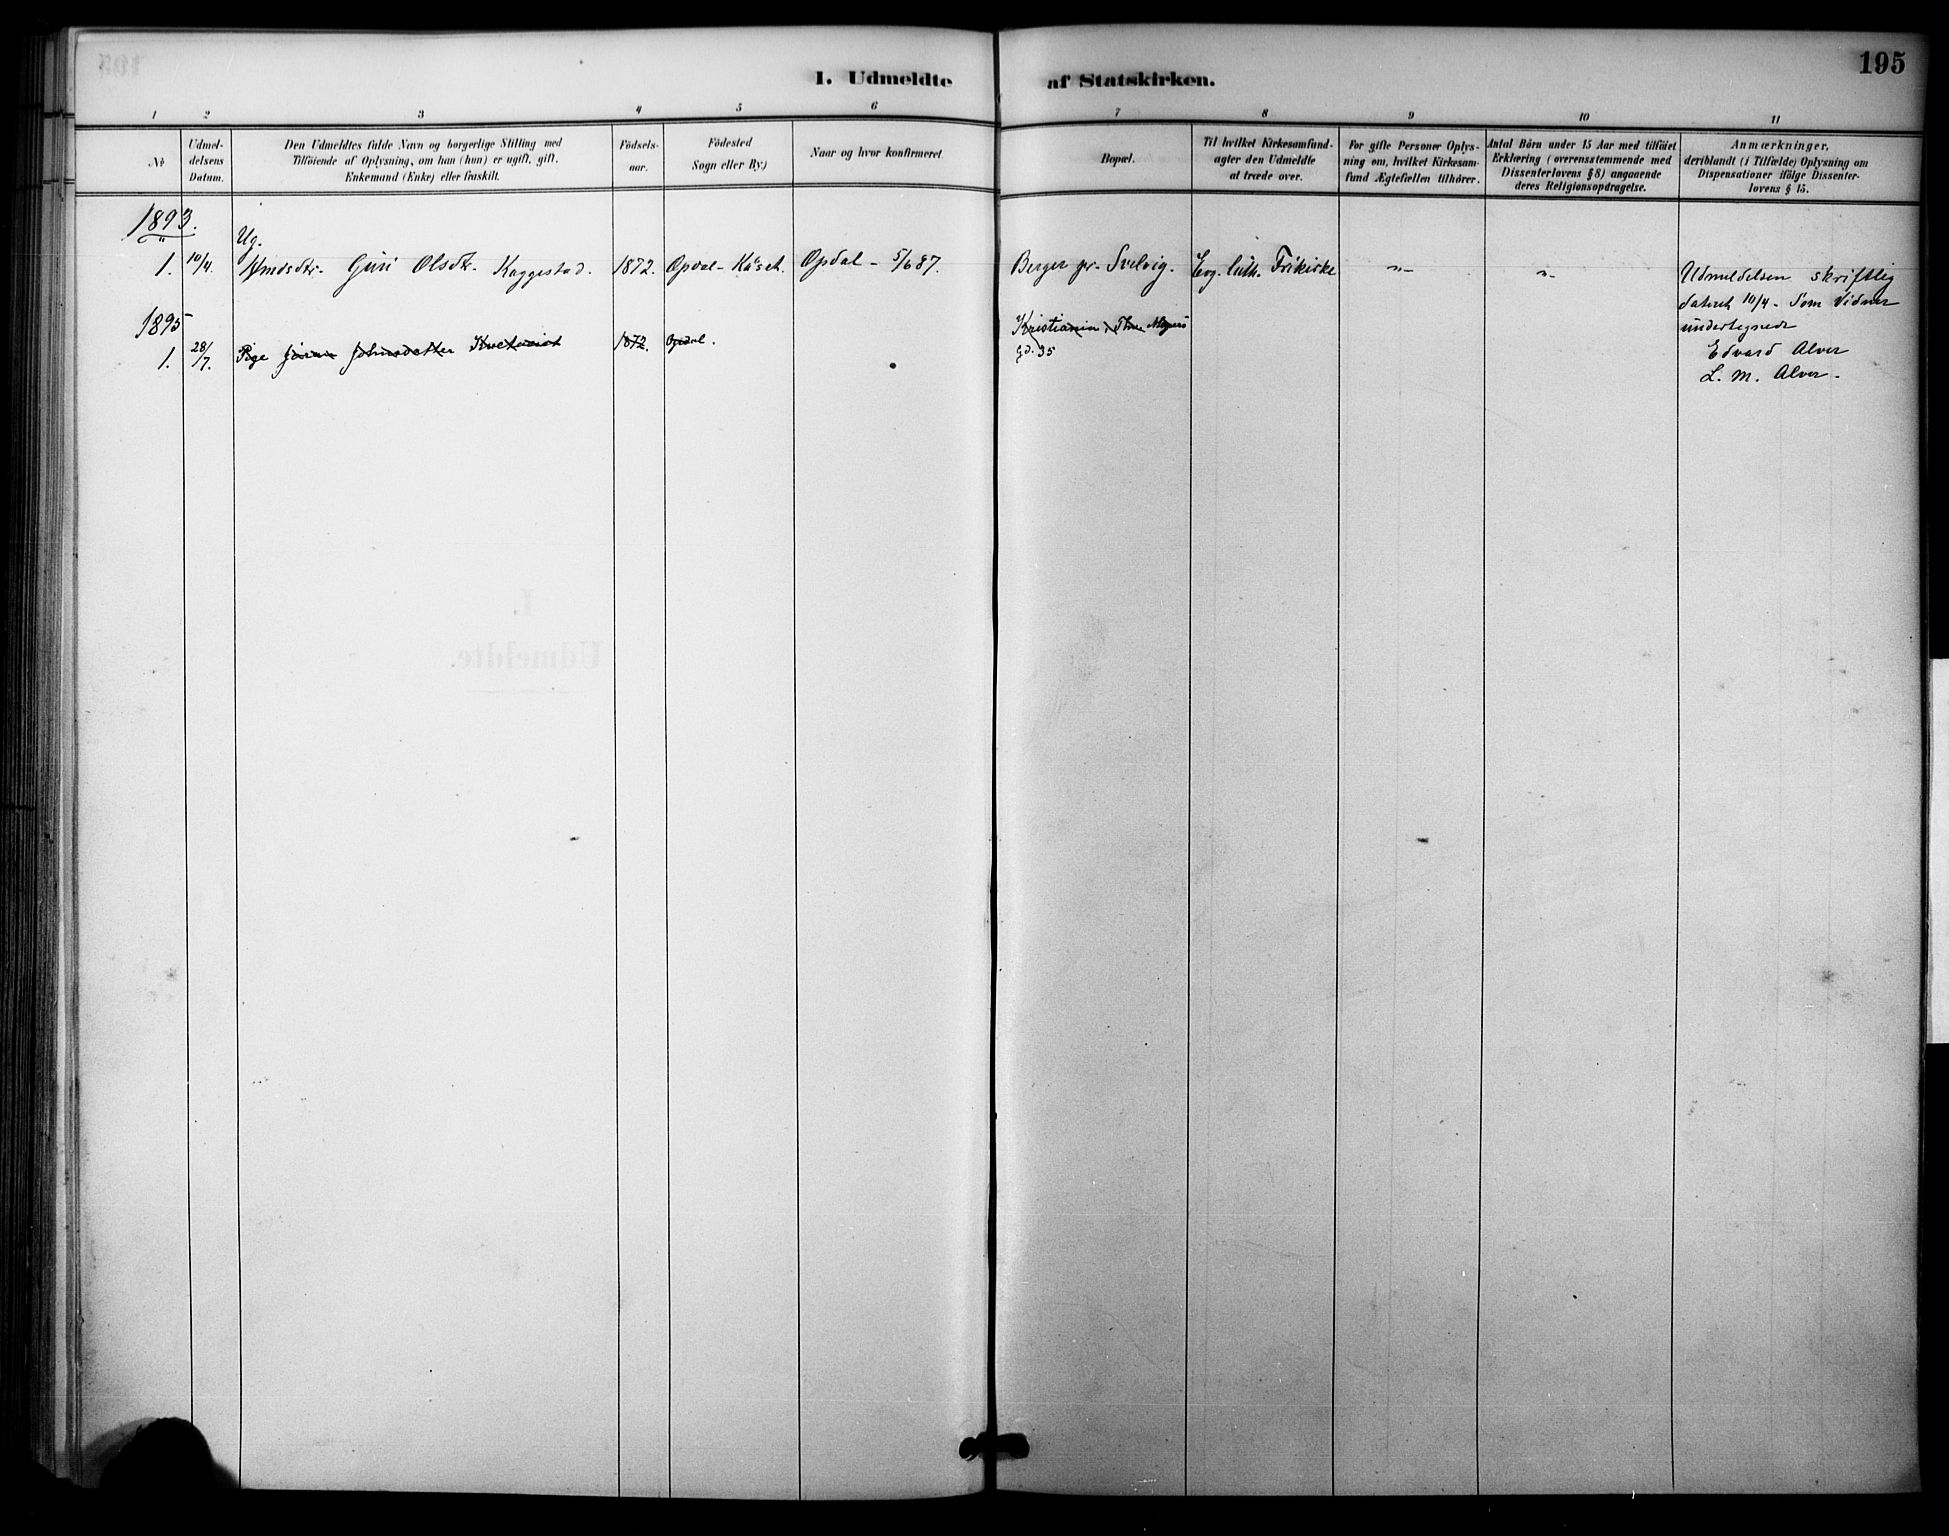 195
I. Udmeldte af Statskirken.
1 2 3 4 5 6 7 8 9 10 11
No
Udmel-
delsens
Datum.
Den Udmeldtes fulde Navn og borgerlige Stilling med
Tilföiende af Oplysning, om han (hun) er ugift, gift,
Enkemand (Enke) eller fraskilt.
Födsels-
aar.
Födested
Sogn eller By.)
Naar og hvor konfirmeret.
Bopæl.
Til hvilket Kirkesamfund
agter den Udmeldte
at træde over.
For gifte Personer Oplys-
ning om, hvilket Kirkesam-
fund Ægtefællen tilhörer.
Antal Börn under 15 Aar med tilföiet
Erklæring (overensstemmende med
Dissenterlovens § 8) angaaende
deres Religionsopdragelse.
Anmærkninger,
deriblandt (i Tilfælde) Oplysning om
Dispensationer ifölge Dissenter-
lovens § 15.
1893.
Ug.
1. 10/4. Guri Olsdtr. Kaggestad. 1872. Opdal - Opdal - 5/6 87. Berger pr. Svelvig. Evg. luth. Frikirke " "
Udmeldelsen skriftlig
dateret 10/4 - Som Vidner
undertegnede
Edvard Alver
L. M. Alver -
1895
1. 28/7. Pige Johnsdatter 1872. Opdal. Kristiania, Thv. Meyers
Gd. 35
I.
Udmeldte.